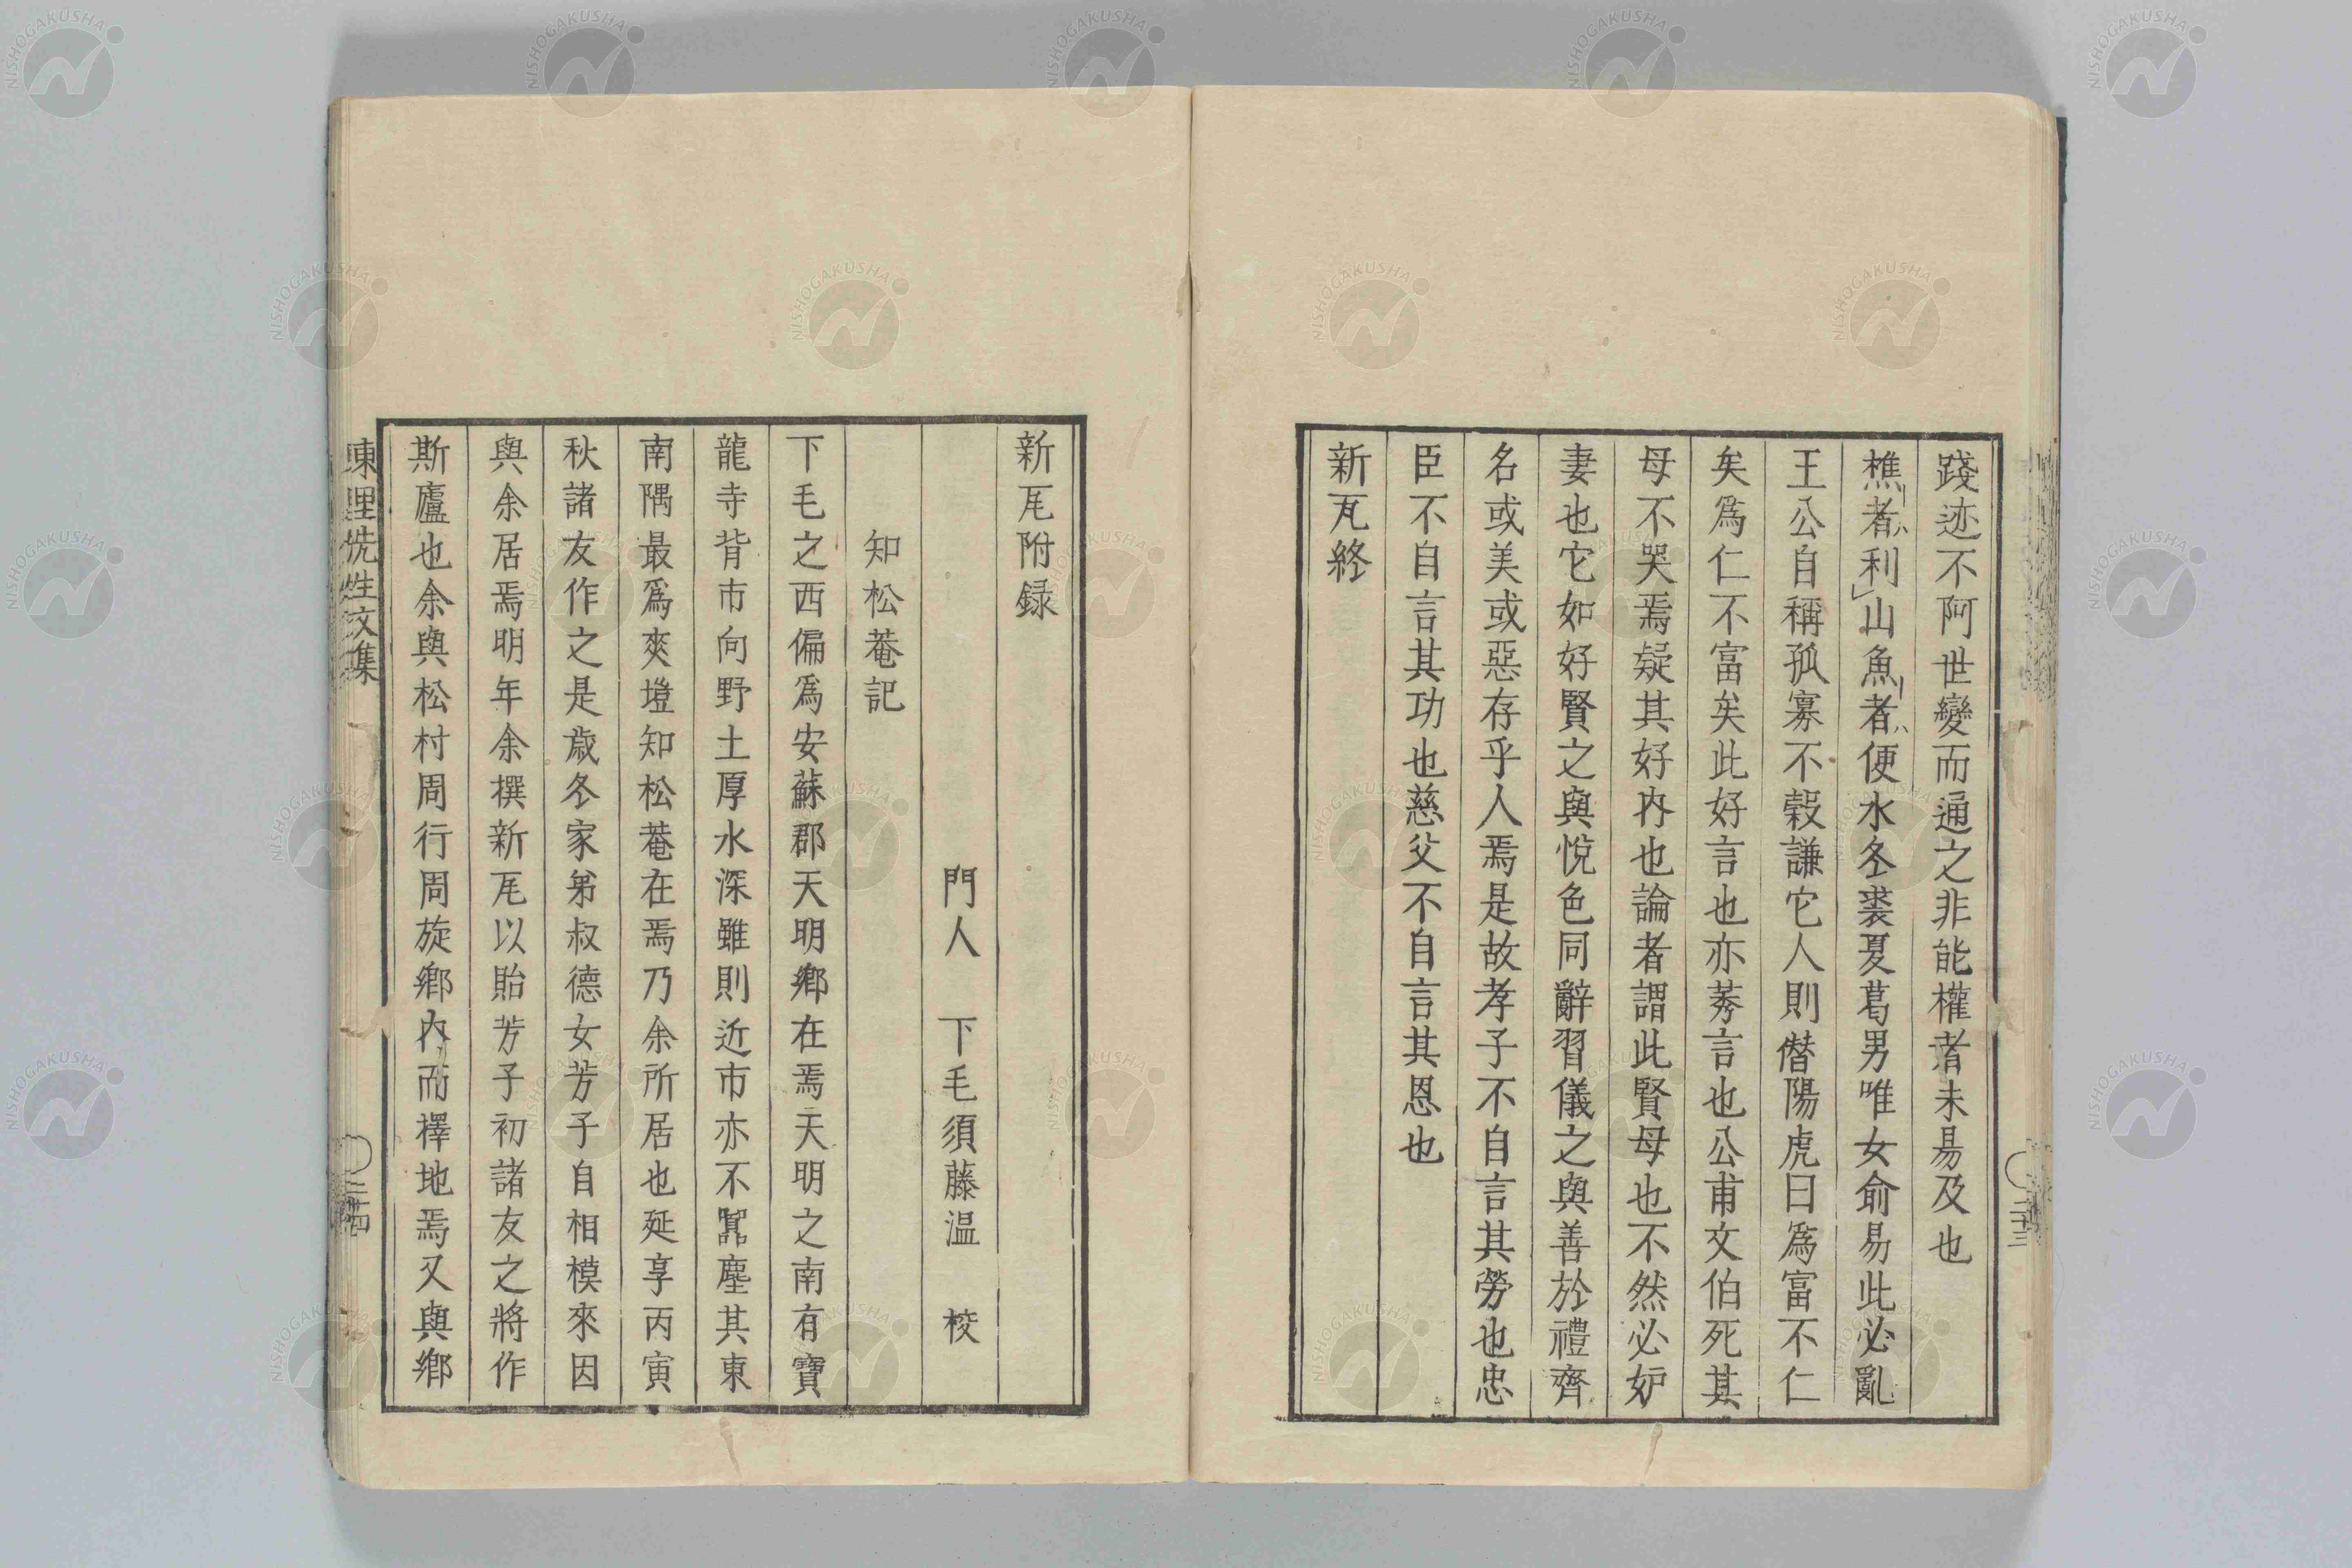 踐迹不阿世變而通之非能權者未易及也
樵者利山魚者便水冬裘夏葛男唯女俞易此必亂
王公自稱孤寡不穀謙它人則僭陽虎曰爲富不仁
矣爲仁不富矣此好言也亦莠言也公甫文伯死其
母不哭焉疑其好內也論者謂此賢母也不然必妒
妻也它如好賢之與悅色同辭習儀之與善於禮齊
名或美或惡存乎人焉是故孝子不自言其勞也忠
臣不自言其功也慈父不自言其恩也
新瓦終
三十三
新瓦附録
門人 下毛須藤溫 校
知松菴記
下毛之西偏爲安蘇郡天明鄕在焉天明之南有寶
龍寺背市向野土厚水深雖則近市亦不嚚塵其東
南隅最爲爽塏知松菴在焉乃余所居也延享丙寅
秋諸友作之是歲冬家弟叔德女芳子自相模來因
與余居焉明年余撰新瓦以貽芳子初諸友之將作
斯廬也余與松村周行周旋鄕內而擇地焉又與鄕
東里先生文集
三十四
NISHOGAKUSHA